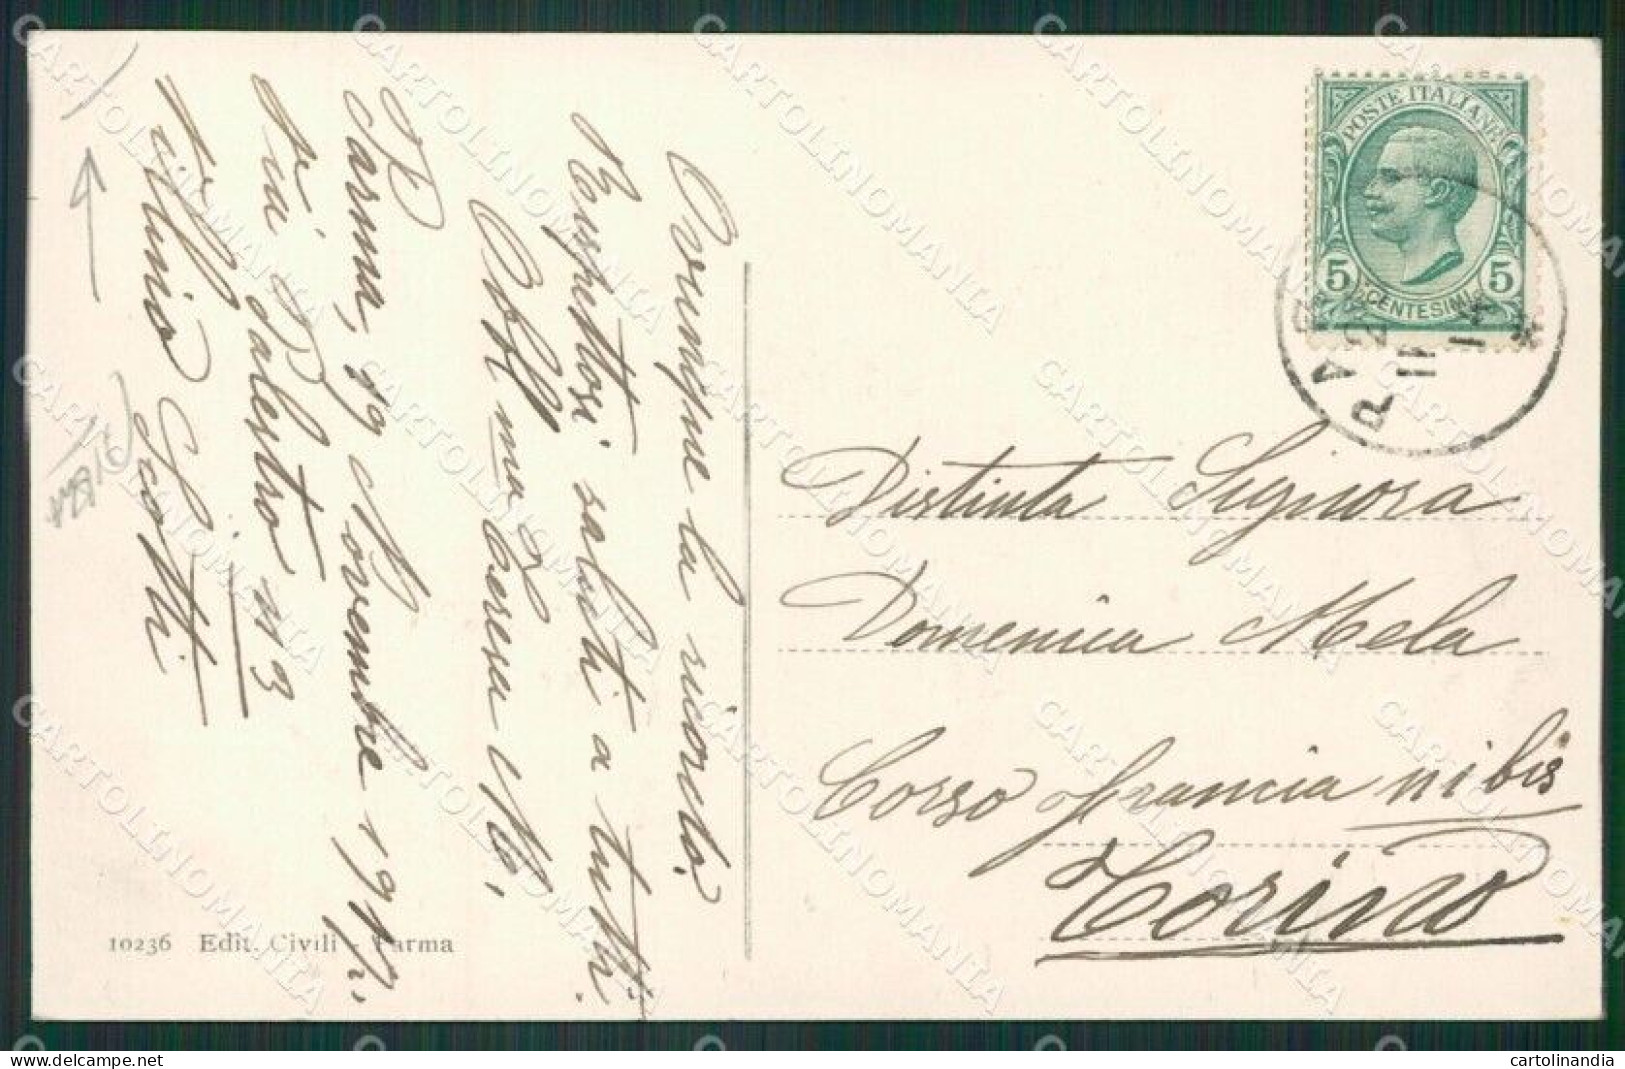 Ovunque la ricordo
Rispettosi saluti a tutti.
Obbl.ma Teresa Mò.
Parma, 19 Novembre 1917.
Via Palestro n 3
Scotti
10236 Edit. Civili - Parma
POSTE ITALIANE
5 CENTESIMI 5
Distinta Signora
Domenica Mela
Corso Francia 11 bis
Torino
CARTOLINOMANIA
cartolinandia